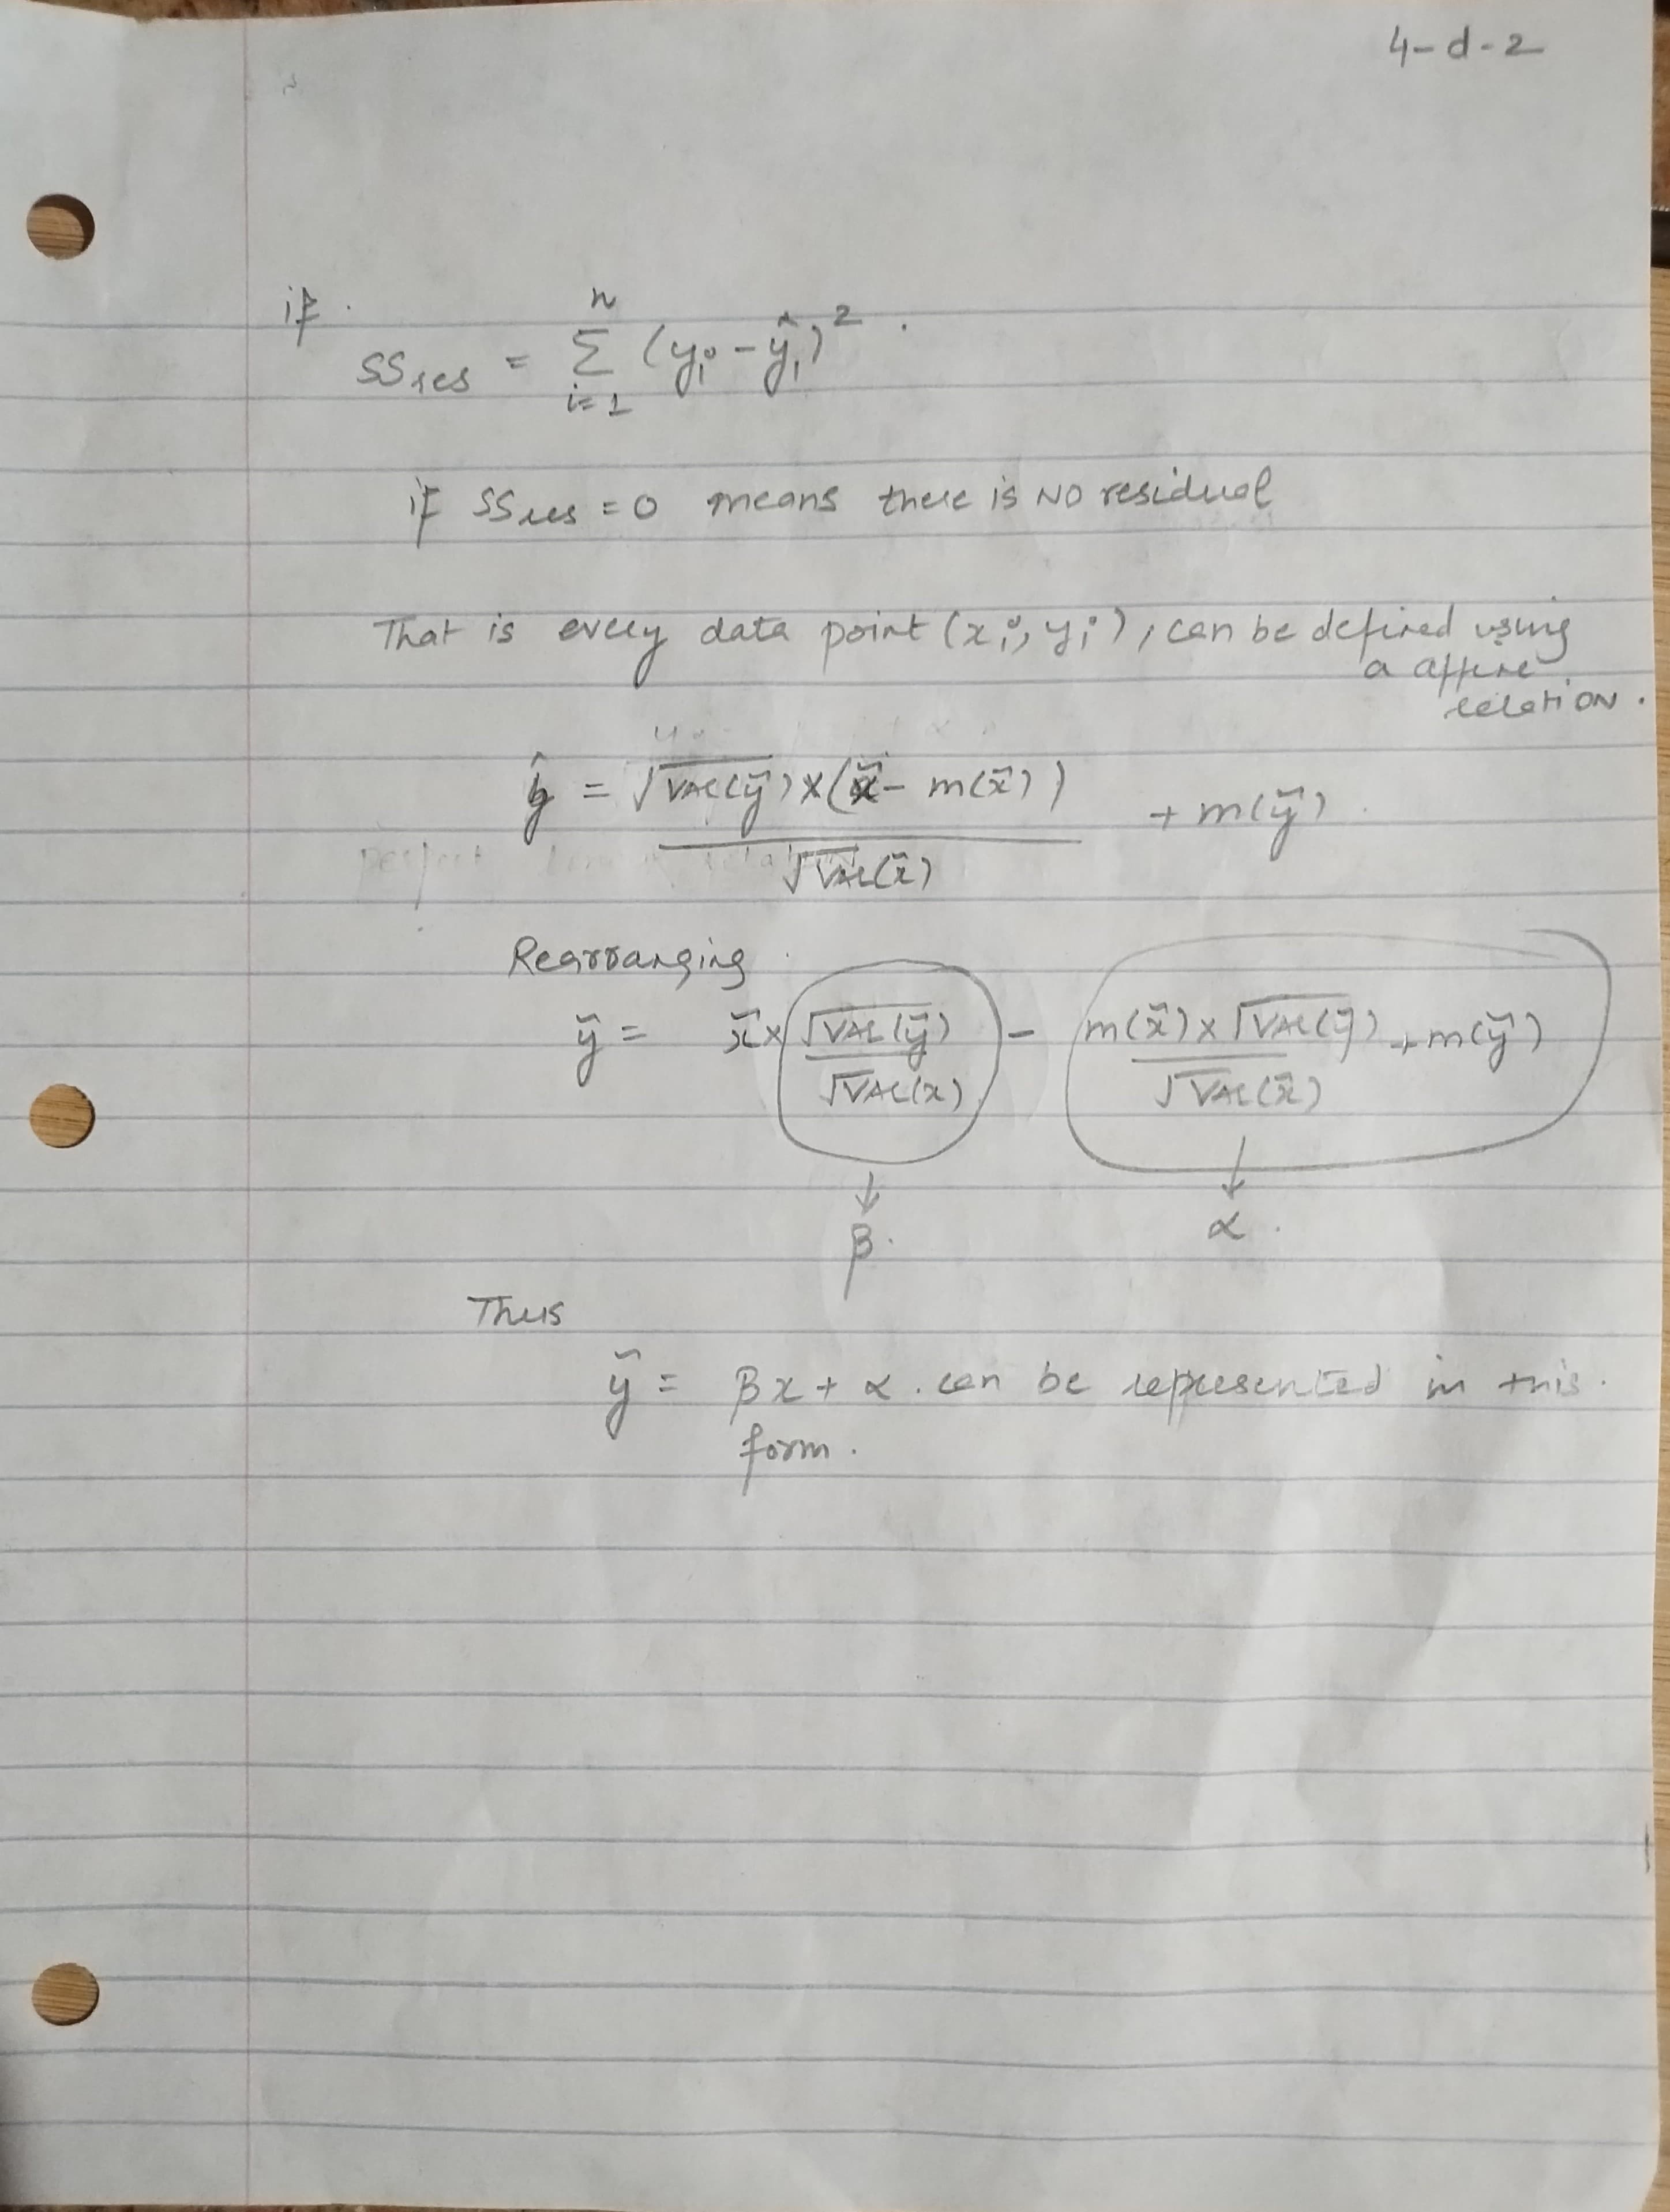 4-d-2
if.
SSres = Σ (yᵢ - ŷᵢ)² .
n
i=1
if SSres = 0 means there is NO residual
That is every data point (xᵢ, yᵢ), can be defined using
a affine
relation.
ŷ = √Var(ȳ) × (x̄ - m(x̄)) + m(ȳ).
√Var(x̄)
Rearranging
ȳ = x̄ × √Var(ȳ) - m(x̄) × √Var(ȳ) + m(ȳ)
√Var(x) √Var(x̄)
↓ ↓
β. α.
Thus
ȳ = βx + α. can be represented in this.
form.